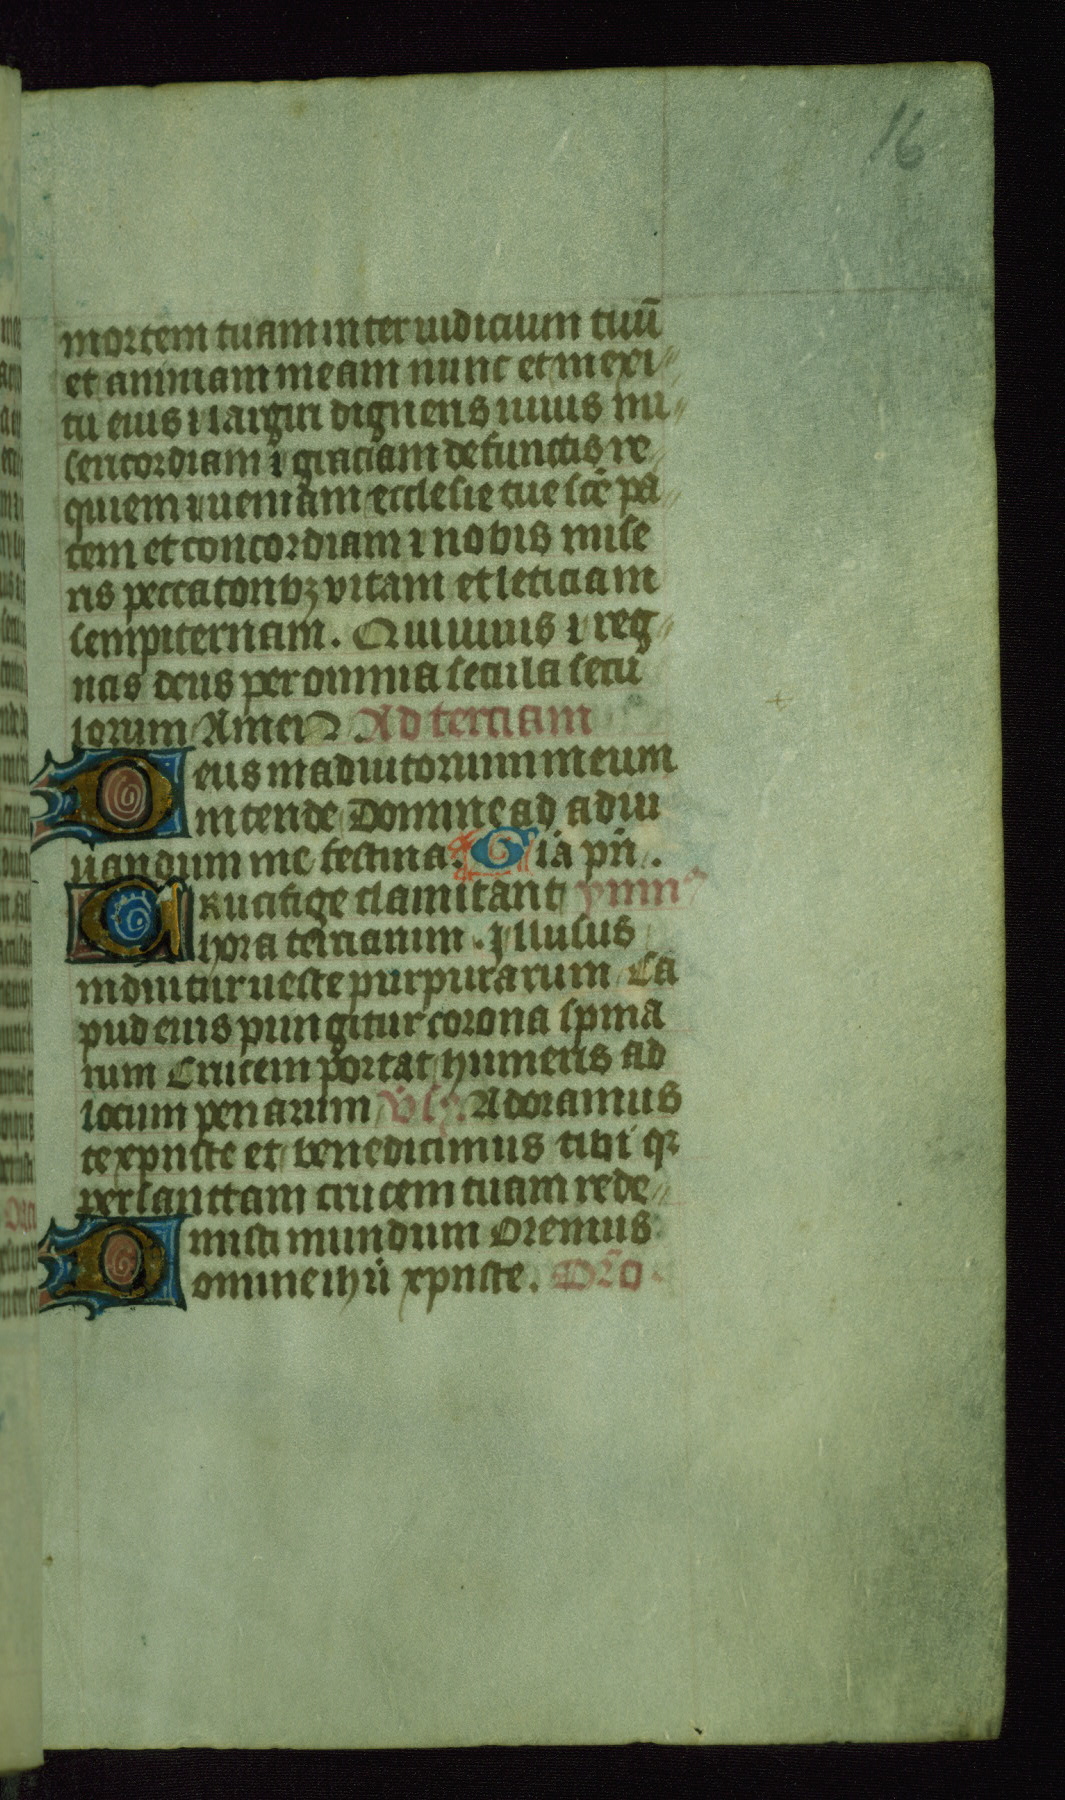 16
mortem tuam inter iudicium tuū
et animam meam nunc et in exi
tu eius ⁊ largiri digneris uiuis mi
sericordiam ⁊ graciam defunctis re
quiem ⁊ ueniam ecclesie tue scē pa
cem et concordiam ⁊ nobis mise
ris peccatoribꝫ vitam et leticiam
sempiternam. Qui uiuis ⁊ reg
nas deus per omnia secula secu
lorum Amen. Ad terciam
Deus in adiutorium meum
intende Domine ad adiu
uandum me festina. Gia pri.
Crucifige clamitant ymnꝰ
hora terciarum. Illusus
induitur ueste purpurarum Ca
pud eius pungitur corona spina
rum Crucem portat humeris ad
locum penarum Vɫꝫ. Adoramus
te xpriste et benedicimus tibi qꝛ
per sanctam crucem tuam rede
misti mundum Oremus
Domine ihū xpriste. Oro.